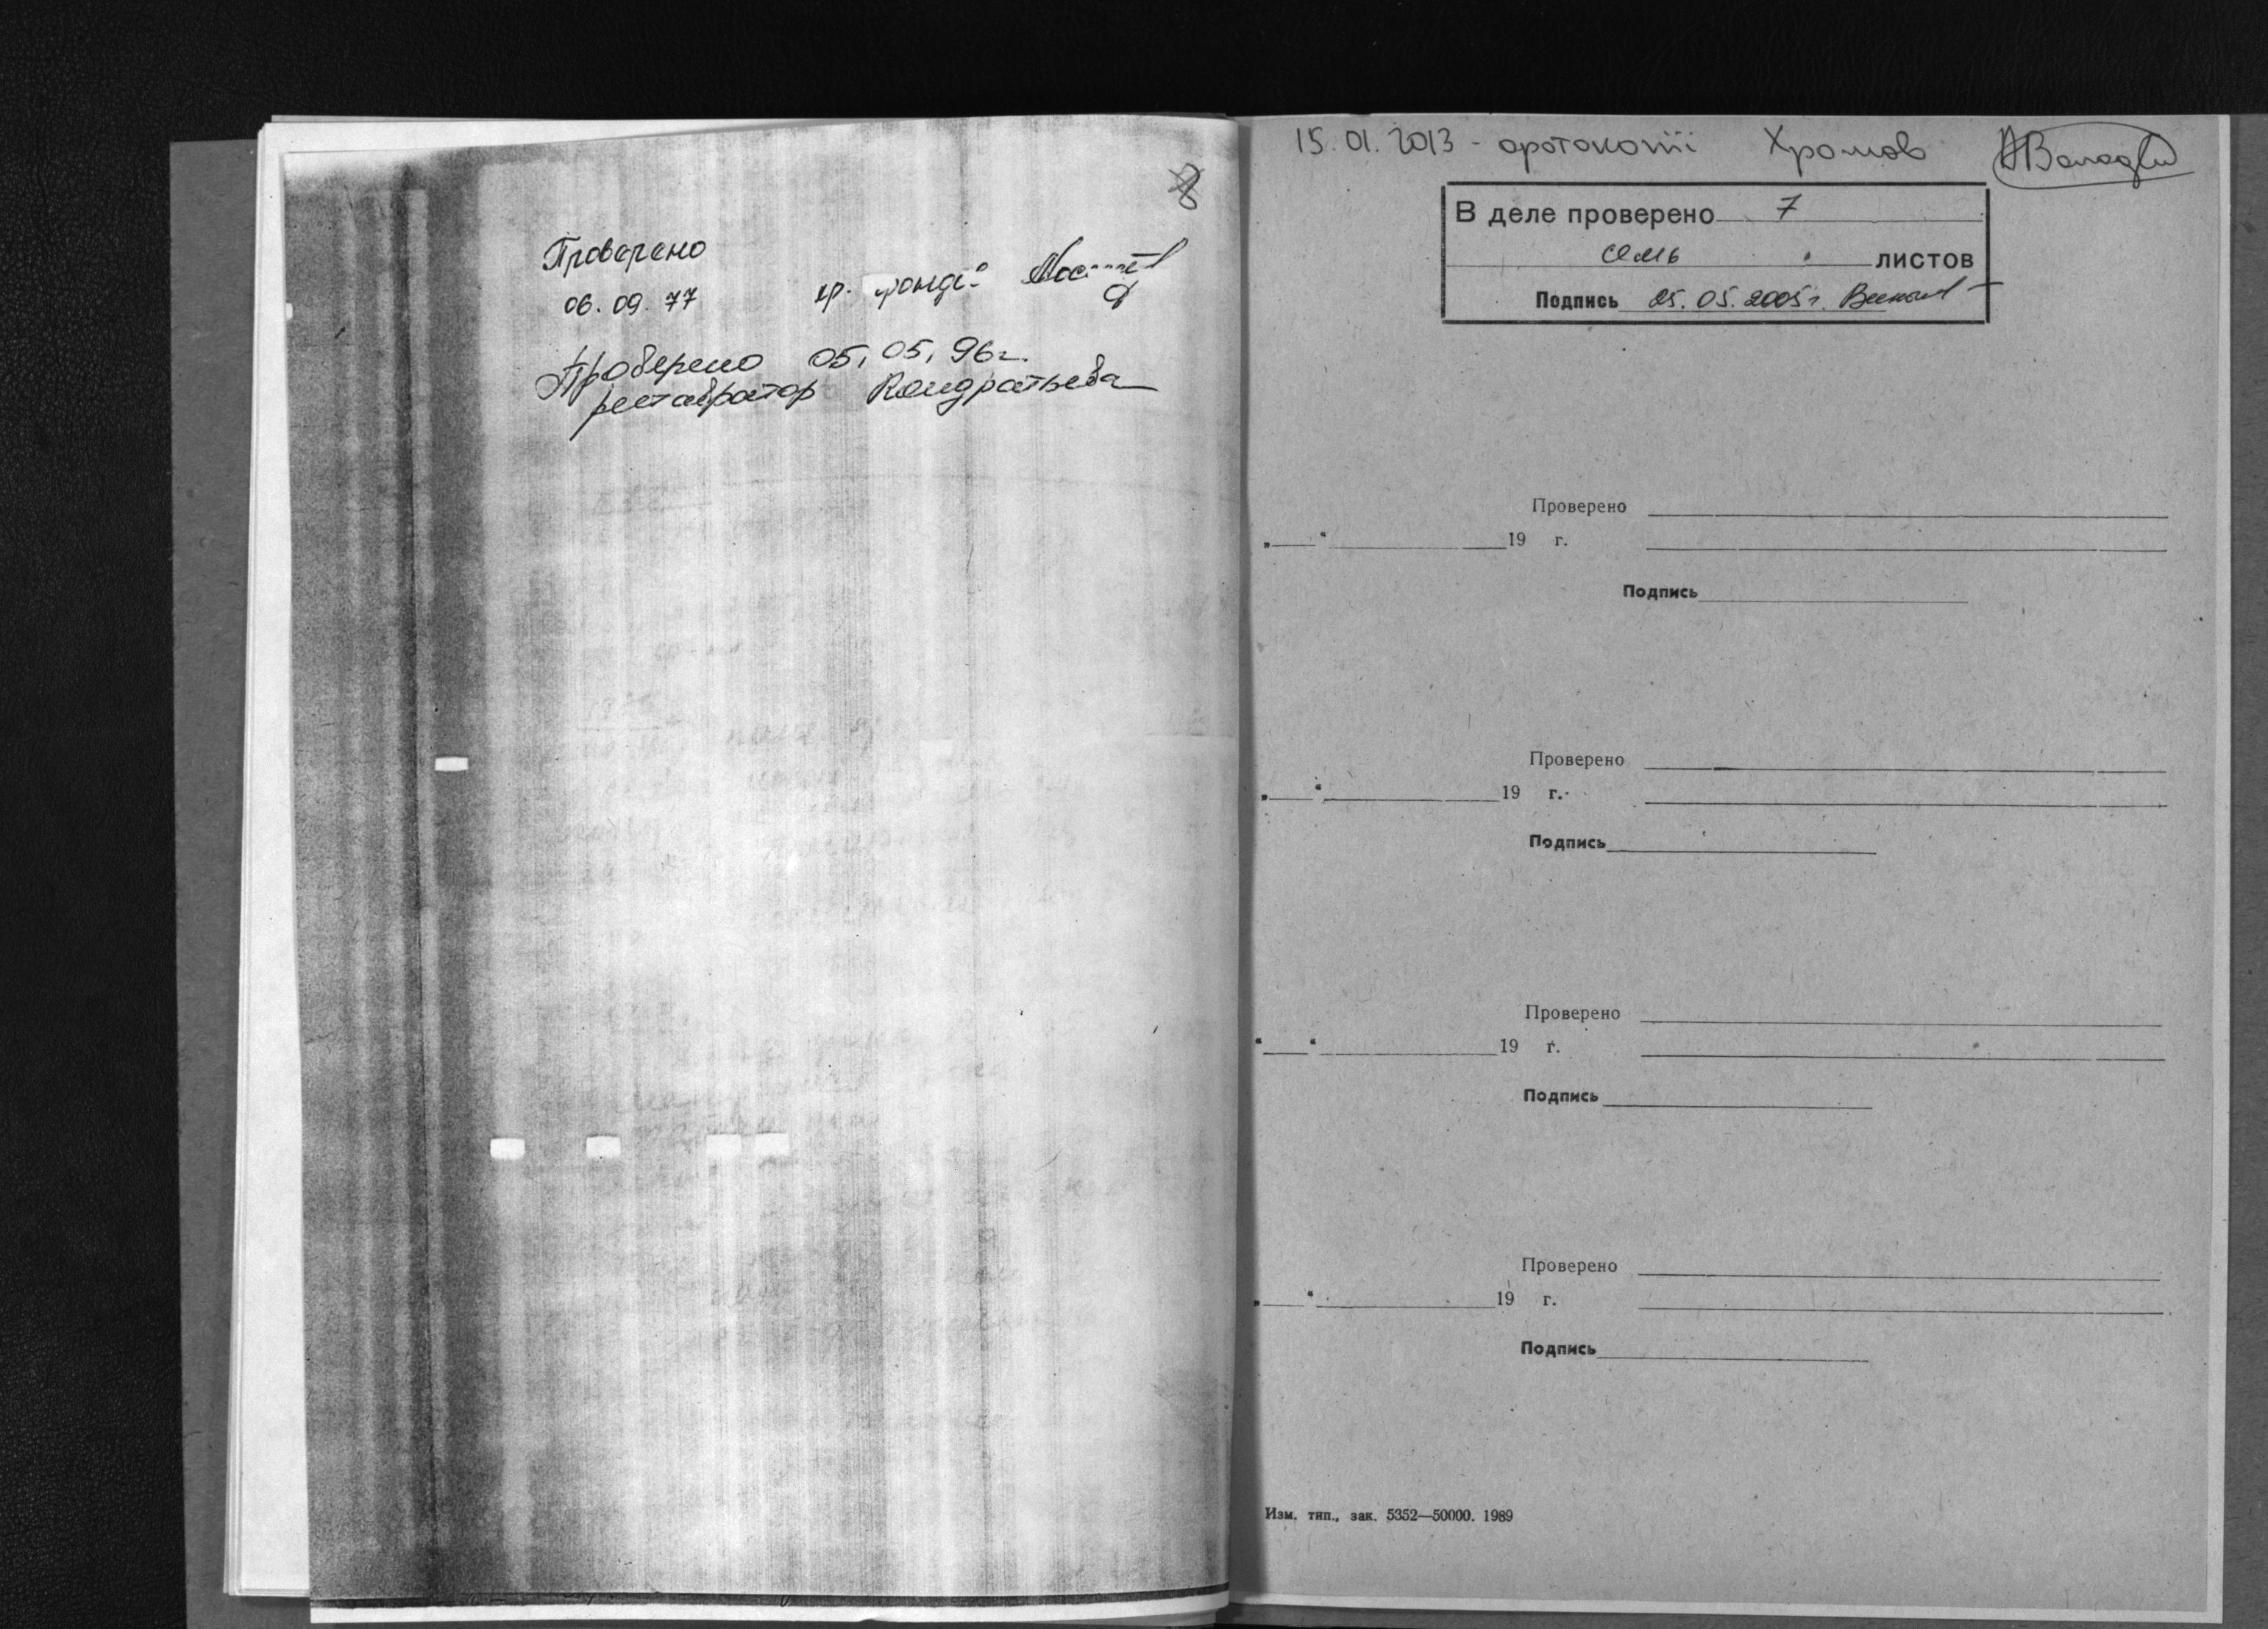 8
Проверено
06.09.77 хр. фондов
Проверено 05.05.96г.
реставратор Кондратьева
15.01.2013 - фотокопии Хромов
В деле проверено 7
семь листов
Подпись 25.05.2005г.
Проверено
„ “ 19 г.
Подпись
Проверено
„ “ 19 г.
Подпись
Проверено
“ “ 19 г.
Подпись
Проверено
„ “ 19 г.
Подпись
Изм. тип., зак. 5352—50000. 1989